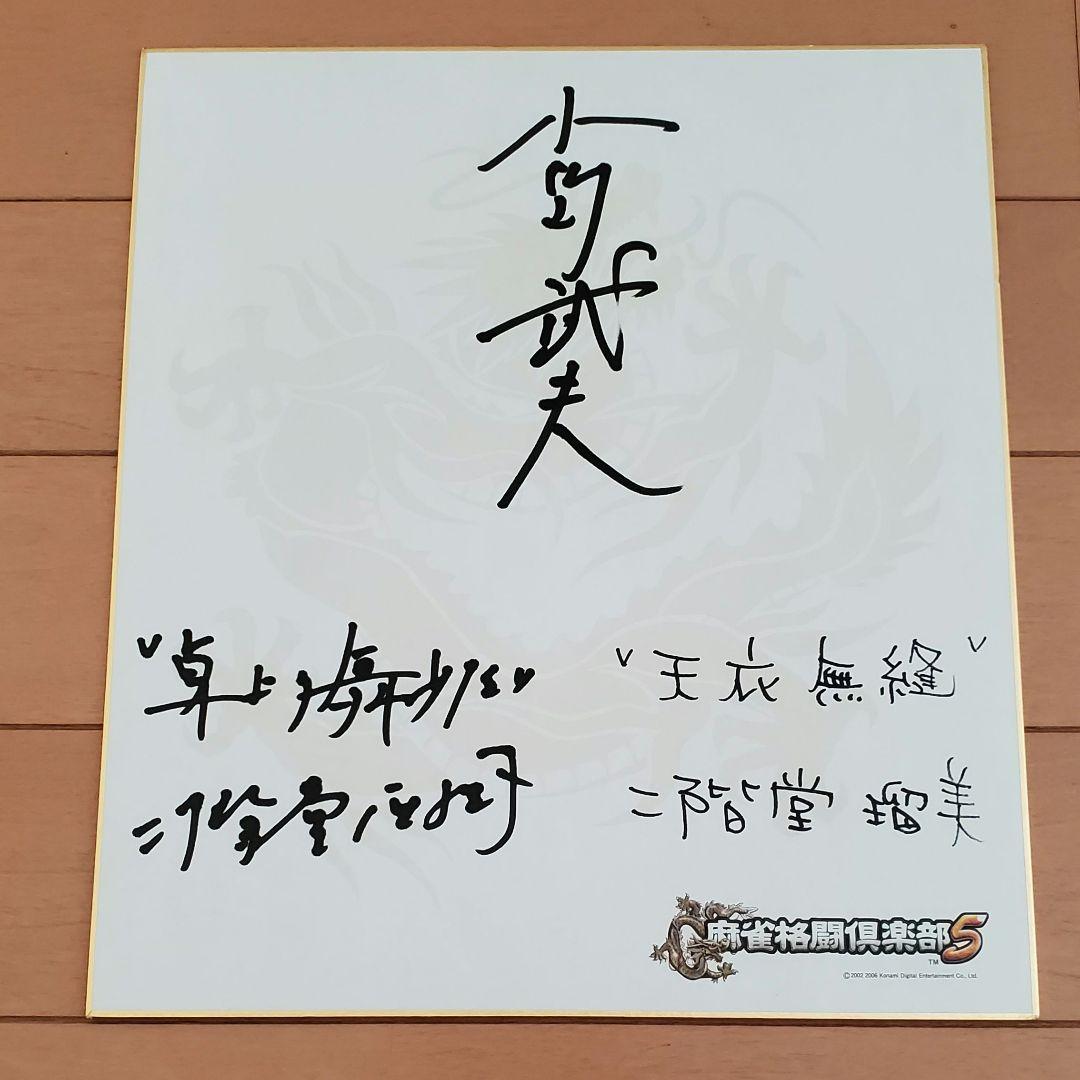 小島武夫
"卓上の舞姫"
二階堂亜樹
"天衣無縫"
二階堂 瑠美
麻雀格闘倶楽部5
TM
©2002 2006 Konami Digital Entertainment Co., Ltd.